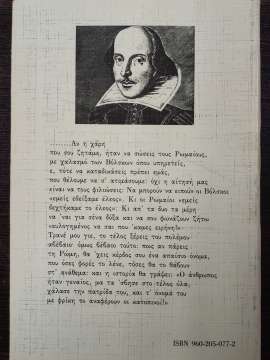 Αν η χάρη
που σου ζητάμε, ήταν να σώσεις τους Ρωμαίους,
με χαλασμό των Βόλσκων όπου υπηρετείς,
ε, τότε να καταδικάσεις πρέπει εμάς,
που θέλουμε να σ' ατιμάσουμε· όχι η αίτησή μας
είναι να τους φιλιώσεις: Να μπορούν να ειπούν οι Βόλσκοι
«εμείς εδείξαμε έλεος». Κι οι Ρωμαίοι «εμείς
δεχτήκαμε το έλεος». Κι απ' τα δυο τα μέρη
να 'ναι για σένα δόξα και να σου φωνάζουν ζήτω
«ευλογημένος να σαι που 'καμες ειρήνη!»
Τρανέ μου γιε, το τέλος ξέρεις του πολέμου
αβέβαιο· όμως βέβαιο τούτο: πως αν πάρεις
τη Ρώμη, θα 'χεις κέρδος σου ένα απαίσιο όνομα,
που όσες φορές το λένε, τόσες θα το βάνουν
στ' ανάθεμα· και η ιστορία θα γράψει: «Ο άνθρωπος
ήταν γενναίος, μα τα 'σβησε στο τέλος όλα,
χάλασε την πατρίδα του, και τ' όνομά του
με φρίκη το αναφέρουν οι κατοπινοί!»
ISBN 960-205-077-2